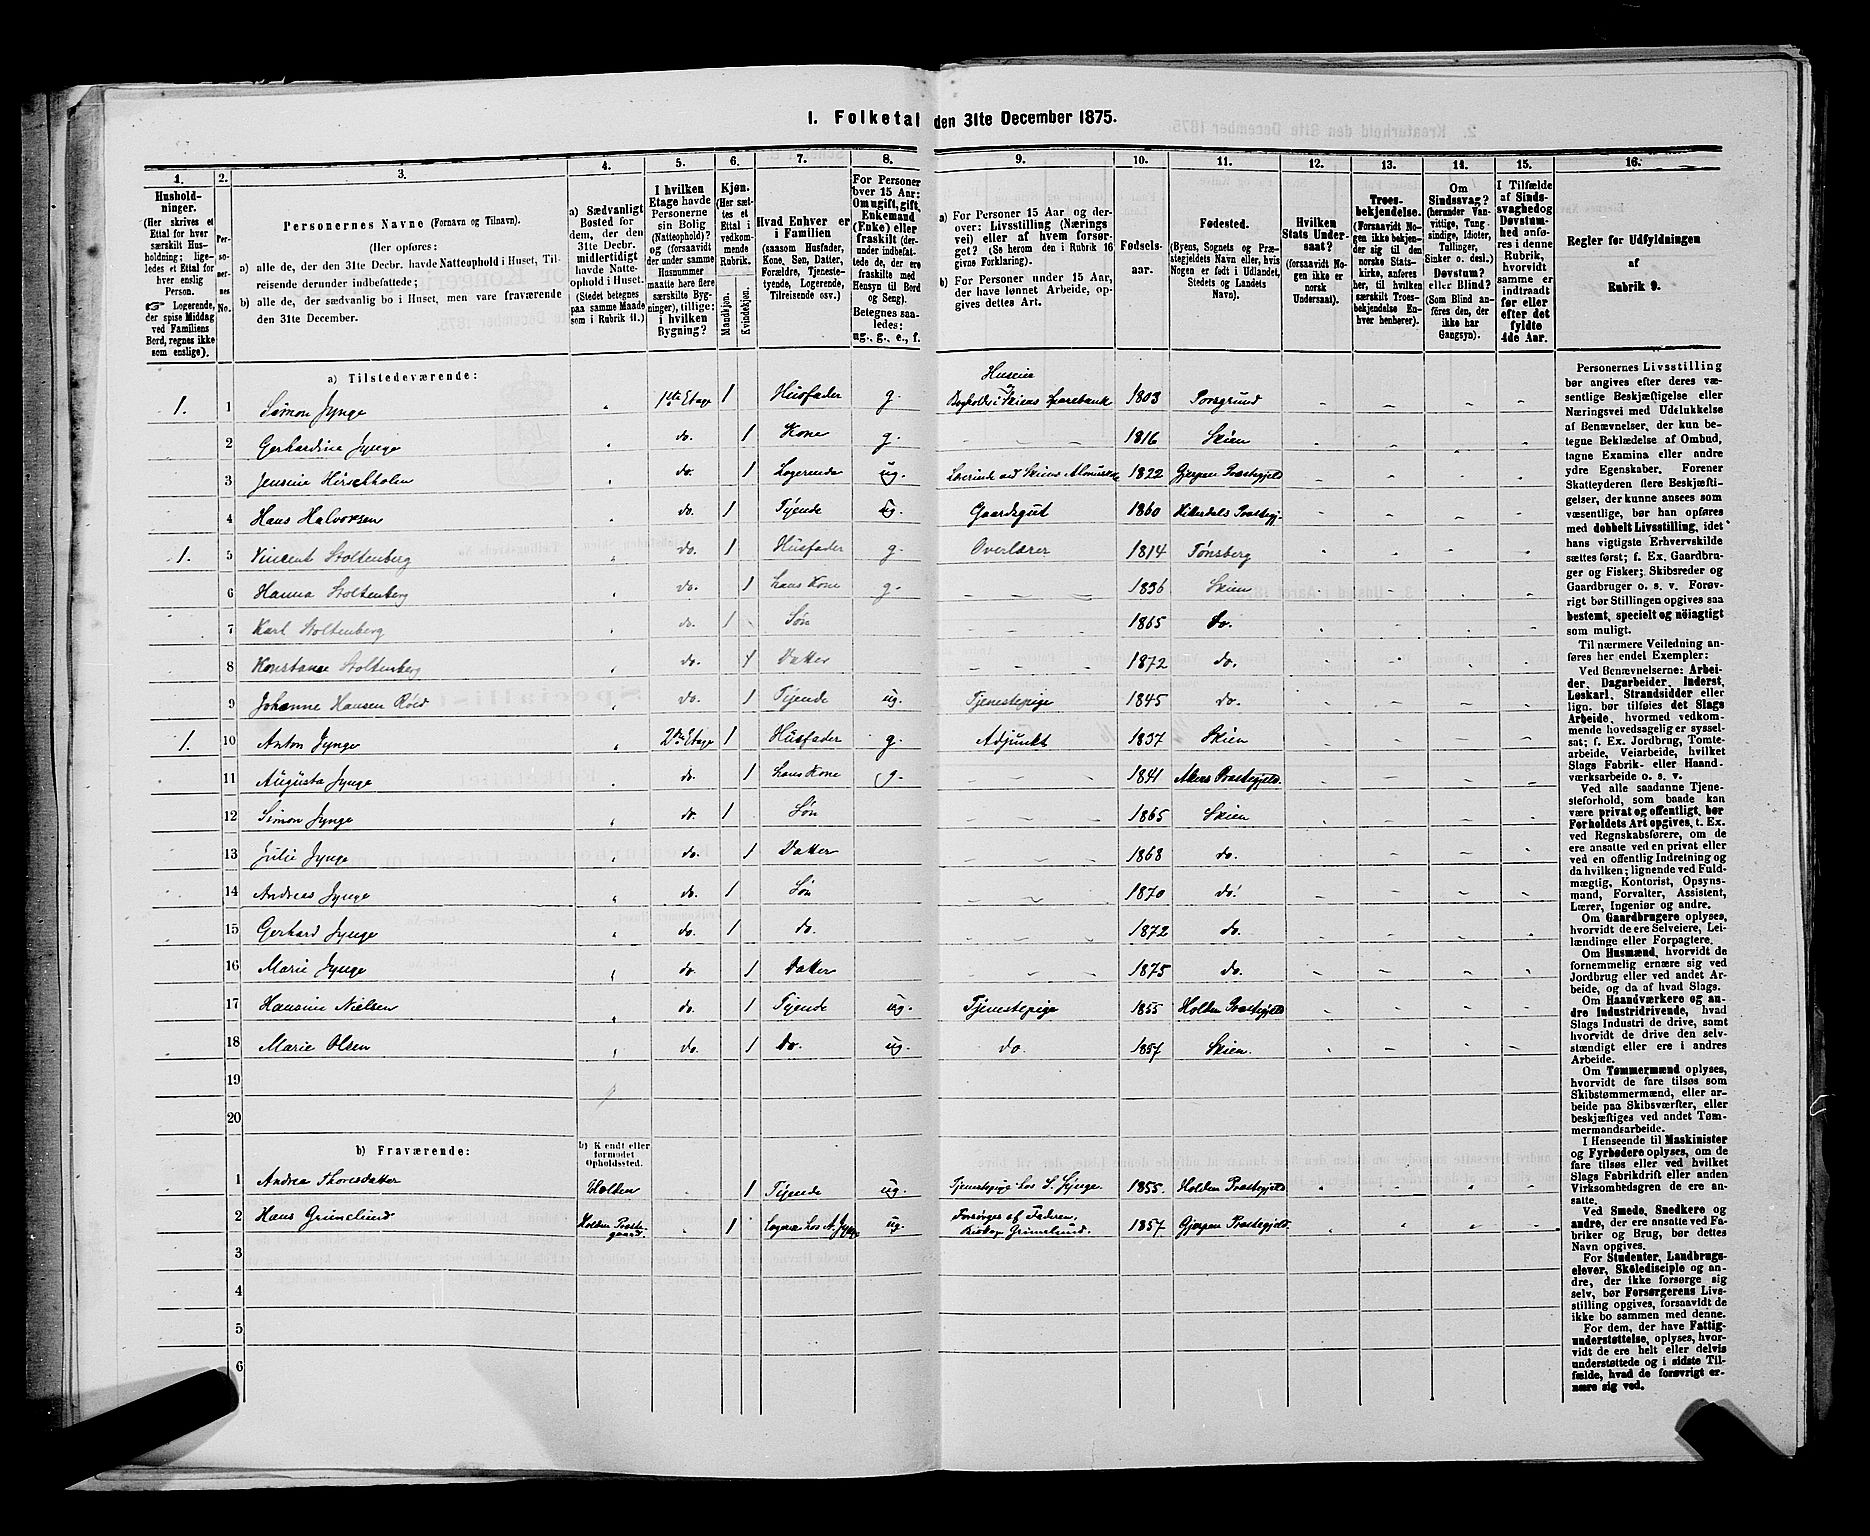 1. Folketal den 31te December 1875.
1. 2. 3. 4. 5. 6. 7. 8. 9. 10. 11. 12. 13. 14. 15. 16.
Hushold-
ninger.
(Her skrives et
Ettal for hver
særskilt Hus-
holdning; lige-
ledes et Ettal for
hver enslig
Person.
Logerende,
der spise Middag
ved Familiens
Bord, regnes ikke
som enslige).
Per-
so-
ner-
nes
No.
Personernes Navne (Fornavn og Tilnavn).
(Her opføres:
a) alle de, der den 31te Decbr. havde Natteophold i Huset, Til-
reisende derunder indbefattede;
b) alle de, der sædvanlig bo i Huset, men vare fraværende
den 31te December.
a) Sædvanligt
Bosted for
dem, der den
31te Decbr.
midlertidigt
havde Natte-
ophold i Huset.
(Stedet betegnes
paa samme Maade
som i Rubrik 11.)
I hvilken
Etage havde
Personerne
sin Bolig
(Natteophold)?
og (forsaavidt
der under samme
Husnummer
maatte høre flere
særskilte Byg-
ninger), tillige:
i hvilken
Bygning?
Kjøn.
(Her sæt-
tes et
Ettal i
vedkom-
mende
Rubrik.
Mandkjøn.
Kvindekjøn.
Hvad Enhver er
i Familien
(saasom Husfader,
Kone, Søn, Datter,
Forældre, Tjeneste-
tyende, Logerende,
Tilreisende osv.)
For Personer
over 15 Aar:
Om ugift, gift,
Enkemand
(Enke) eller
fraskilt (der-
under indbefat-
tede de, der ere
fraskilte med
Hensyn til Bord
og Seng).
Betegnes saa-
ledes:
ug., g., e., f.
a) For Personer 15 Aar og der-
over: Livsstilling (Nærings
vei) eller af hvem forsør-
get? (Se herom den i Rubrik 16
givne Forklaring).
b) For Personer under 15 Aar,
der have lønnet Arbeide, op-
gives dettes Art.
Fødsels-
aar.
Fødested.
(Byens, Sognets og Præ-
stegjeldets Navn, eller hvis
Nogen er født i Udlandet,
Stedets og Landets
Navn).
Hvilken
Stats Under-
saat?
(forsaavidt No-
gen ikke er
norsk
Undersaat).
Troes-
bekjendelse.
(Forsaavidt No-
gen ikke bekjen-
der sig til den
norske Stats-
kirke, anføres
her, til hvilken
særskilt Troes-
bekjendelse En-
hver henhører).
Om
Sindssvag?
(herunder Van-
vittige, Tung-
sindige, Idioter,
Tullinger,
Sinker o. desl.)
Døvstum?
eller Blind?
(Som Blind an-
føres den, der
ikke har
Gangsyn).
I Tilfælde
af Sinds-
svaghed og
Døvstum-
hed anfø-
res i denne
Rubrik,
hvorvidt
samme er
indtraadt
før eller
efter det
fyldte
4de Aar.
Regler for Udfyldningen
af
Rubrik 9.
a) Tilstedeværende:
1. 1 Simon Jynge 1ste Etage 1 Husfader g. Huseier og Bogholder i Skiens Sparebank 1803 Porsgrund
2 Gerhardine Jynge do. 1 Kone g. 1816 Skien
3 Jensine Hirschholm do. 1 Logerende ug. Lærerinde ved Skiens 1822 Gjerpen Præstegjeld
4 Hans Halvorsen do. 1 Tjende ug. Gaardsgut 1860 Hiterdals Præstegj.
1. 5 Vincent Stoltenberg do. 1 Husfader g. Overlærer 1814 Tønsberg
6 Hanna Stoltenberg do. 1 hans Kone g. 1836 Skien
7 Karl Stoltenberg do. 1 Søn 1865 do.
8 Konstance Stoltenberg do. 1 Datter 1872 do.
9 Johanne Hansen Röed do. 1 Tjende ug. Tjenestepige 1845 do.
1. 10 Anton Jynge 2den Etage 1 Husfader g. Adjunkt 1837 Skien
11 Augusta Jynge do. 1 hans Kone g. 1841 Akers Præstegjeld.
12 Simon Jynge do. 1 Søn 1865 Skien
13 Julie Jynge do. 1 Datter 1868 do.
14 Andreas Jynge do. 1 Søn 1870 do.
15 Gerhard Jynge do. 1 do. 1872 do.
16 Marie Jynge do. 1 Datter 1875 do.
17 Hansine Nielsen do. 1 Tjende ug. Tjenestepige 1855 Holden Præstegjeld
18 Marie Olsen do. 1 do. ug. do. 1857 Skien.
19
20
b) Fraværende:
b) Kendt eller
formodet
Opholdssted.
1 Andrea Thoresdatter Holden 1 Tjende ug. Tjenestepige hos S. Jynge. 1855. Holden Præstegjeld
2 Hans Grimelund Holden Præste-
gaard. 1 Logerer hos A. Jynge ug. Forsørges af Faderen,
Biskop Grimelund. 1857 Gjerpen Præstegjeld.
3
4
5
6
Personernes Livsstilling
bør angives efter deres væ-
sentlige Beskjæftigelse eller
Næringsvei med Udelukkelse
af Benævnelser, der kun be-
tegne Beklædelse af Ombud,
tagne Examina eller andre
ydre Egenskaber. Forener
Skatteyderen flere Beskjæfti-
gelser, der kunne ansees som
væsentlige, bør han opføres
med dobbelt Livsstilling, idet
hans vigtigste Erhvervskilde
sættes først; f. Ex. Gaardbru-
ger og Fisker; Skibsreder og
Gaardbruger o. s. v. Forøv-
rigt bør Stillingen opgives saa
bestemt, specielt og nöiagtigt
som muligt.
Til nærmere Veiledning an-
føres her endel Exempler:
Ved Benævnelserne: Arbei-
der, Dagarbeider, Inderst,
Løskarl, Strandsidder eller
lign. bør tilføies det Slags
Arbeide, hvormed vedkom-
mende hovedsagelig er syssel-
sat; f. Ex. Jordbrug, Tomte-
arbeide, Veiarbeide, hvilket
Slags Fabrik- eller Haand-
værksarbeide o. s. v.
Ved alle saadanne Tjene-
steforhold, som baade kan
være privat og offentligt, bør
Forholdets Art opgives, t. Ex.
ved Regnskabsførere, om de
ere ansatte ved en privat eller
ved en offentlig Indretning og
da hvilken; lignende ved Fuld-
mægtig, Kontorist, Opsyns-
mand, Forvalter, Assistent,
Lærer, Ingeniør og andre.
Om Gaardbrugere oplyses,
hvorvidt de ere Selveiere, Lei-
lændinge eller Forpagtere.
Om Husmænd, hvorvidt de
fornemmelig ernære sig ved
Jordbrug eller ved andet Ar-
beide, og da af hvad Slags.
Om Haandværkere og an-
dre Industridrivende, hvad
Slags Industri de drive, samt
hvorvidt de drive den selv-
stændigt eller ere i andres
Arbeide.
Om Tømmermænd oplyses,
hvorvidt de fare tilsøs som
Skibstømmermænd, eller ar-
beide paa Skibsværfter, eller
beskjæftiges ved andet Tøm-
mermandsarbeide.
I Henseende til Maskinister
og Fyrbødere oplyses, om de
fare tilsøs eller ved hvilket
Slags Fabrikdrift eller anden
Virksomhedsgren de ere an-
satte.
Ved Smede, Snedkere og
andre, der ere ansatte ved Fa-
briker og Brug, bør dettes
Navn opgives.
For Studenter, Landbrugs-
elever, Skoledisciple og an-
dre, der ikke forsørge sig
selv, bør Forsørgerens Livs-
stilling opgives, forsaavidt de
ikke bo sammen med denne.
For dem, der have Fattig-
understøttelse, oplyses, hvor-
vidt de ere helt eller delvis
understøttede og i sidste Til-
fælde, hvad de forøvrigt er-
nære sig ved.